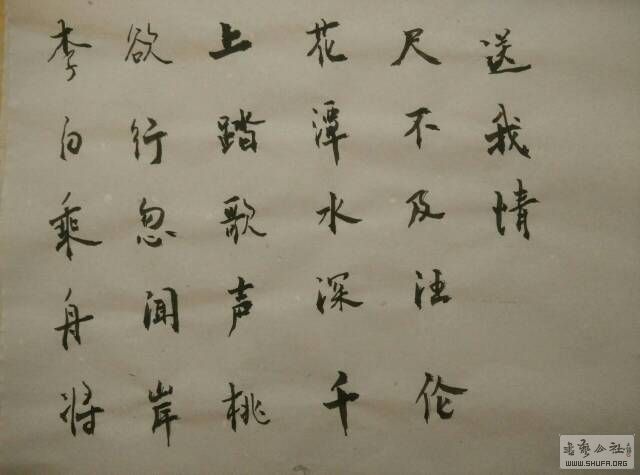 李白乘舟将
欲行忽闻岸
上踏歌声桃
花潭水深千
尺不及汪伦
送我情
WWW.SHUFA.ORG